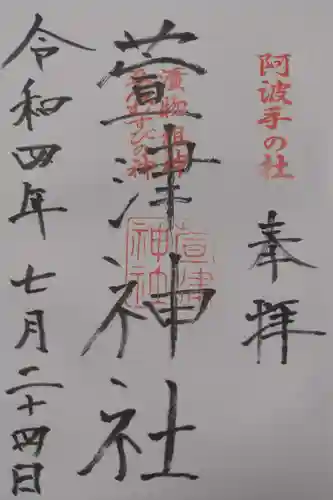 阿波手の社
奉拝
漬物祖神
萱津神社
萱津神社
令和四年七月二十四日